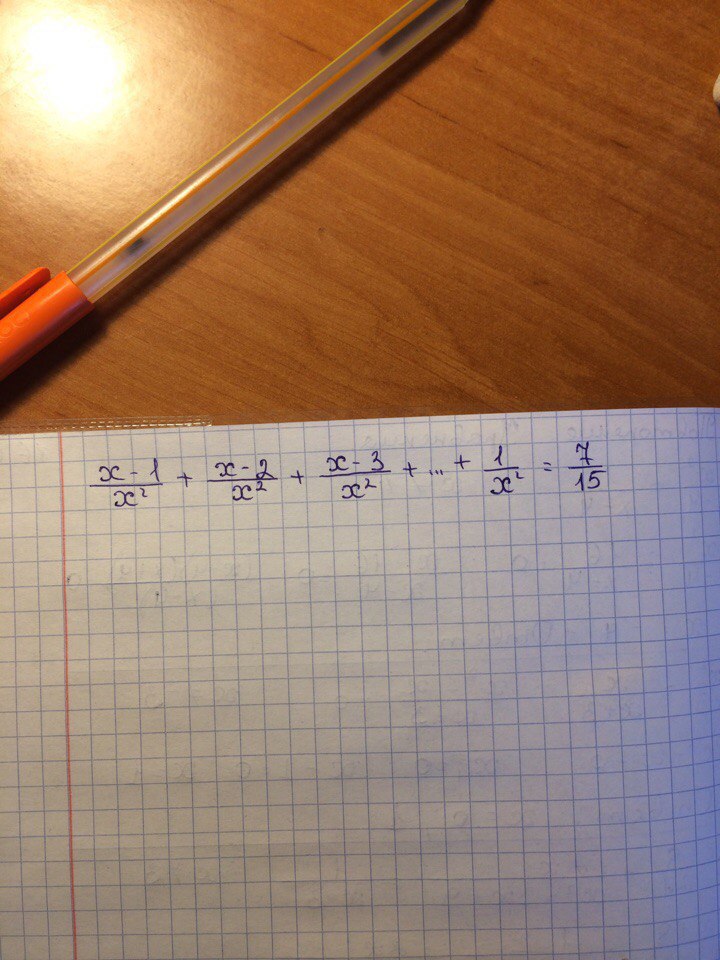 x - 1/x² + x - 2/x² + x - 3/x² + ... + 1/x² = 7/15